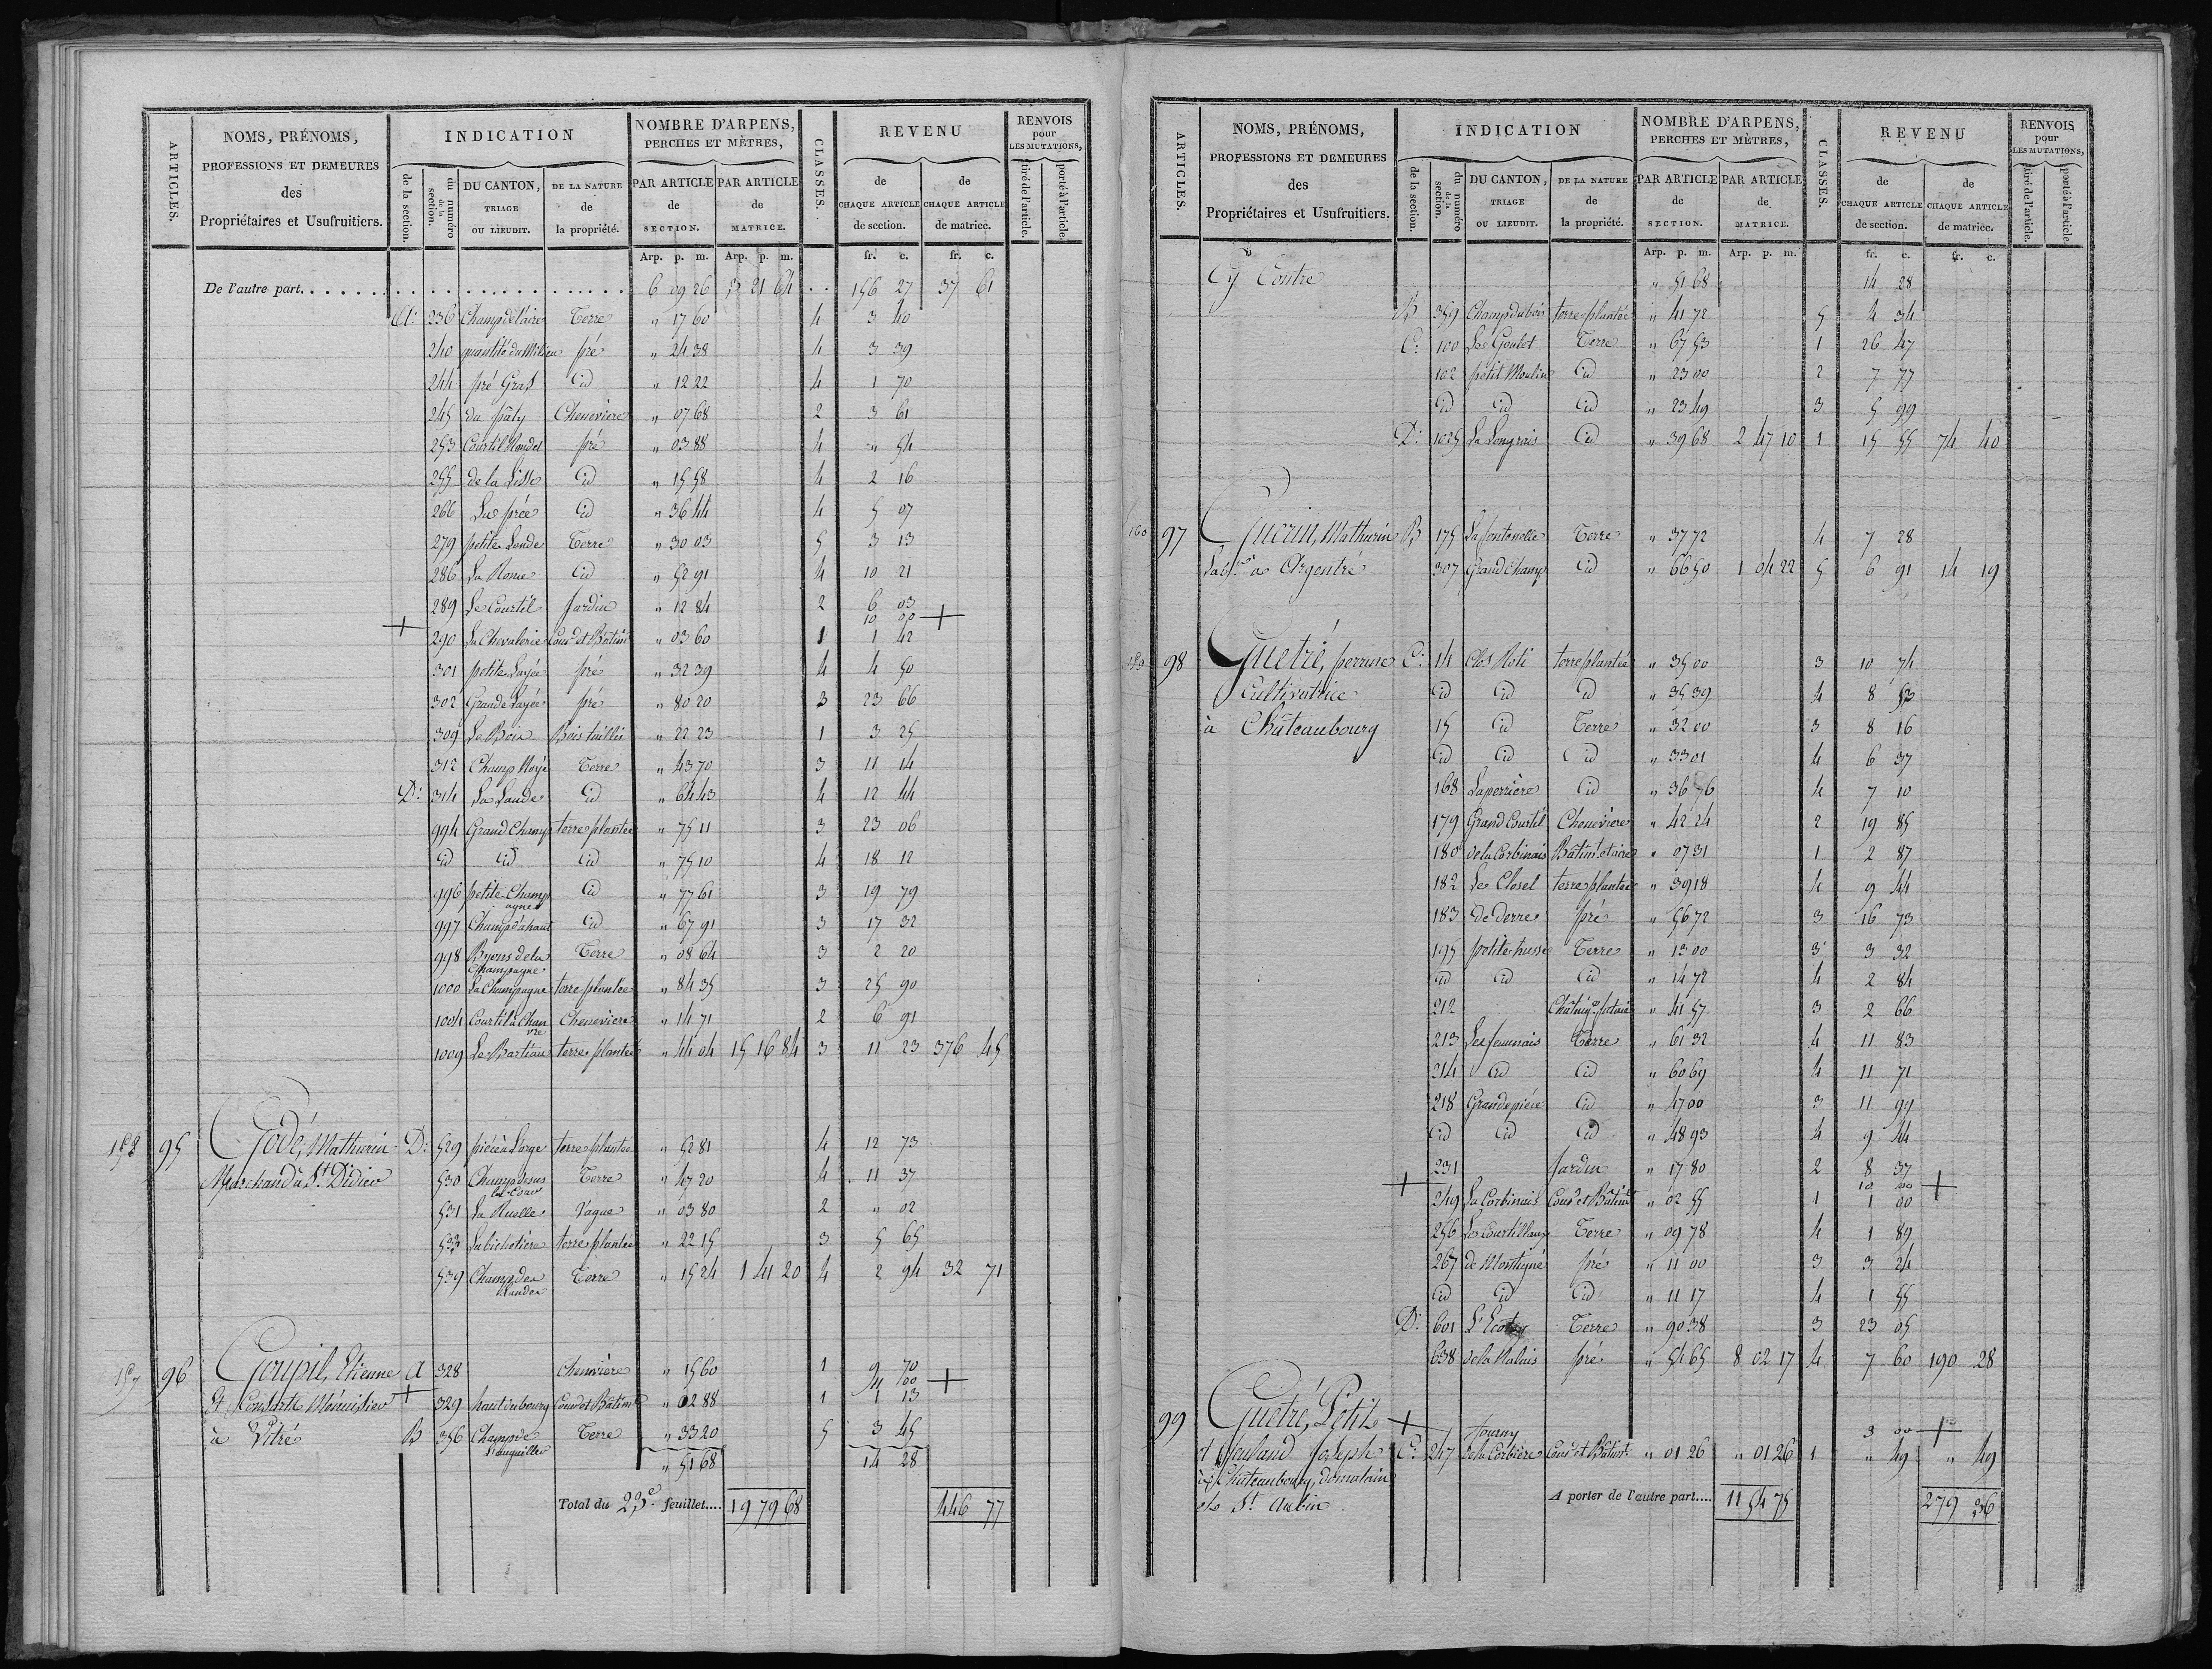 ARTICLES. NOMS, PRÉNOMS, PROFESSIONS ET DEMEURES des Propriétaires et Usufruitiers. INDICATION de la section. du numéro de la section. DU CANTON, TRIAGE OU LIEUDIT. DE LA NATURE de la propriété. NOMBRE D'ARPENS, PERCHES ET MÈTRES, PAR ARTICLE de SECTION. PAR ARTICLE de MATRICE. CLASSES. REVENU de CHAQUE ARTICLE de section. de CHAQUE ARTICLE de matrice. RENVOIS pour LES MUTATIONS, tiré de l'article. porté à l'article.
Arp. p. m. Arp. p. m. fr. c. fr. c.
De l'autre part. 6 09 26 3 21 64 156 27 37 61
A: 236 Champ de l'aire Terre " 17 60 4 3 40
240 quantité du Milieu pré " 24 38 4 3 39
244 pré Gras id " 12 22 4 1 70
245 du pâty Chenevière " 07 68 2 3 61
253 Courtil pré " 03 88 4 " 54
255 de la Lisse id " 15 58 4 2 16
266 La prée id " 36 44 4 5 07
279 petite Lande Terre " 30 03 5 3 13
286 La Noue id " 52 91 4 10 21
289 Le Courtil Jardin " 12 84 2 6 03
+ 10 00 +
290 La Chevalerie Cour et Bâtimt " 03 60 1 1 42
301 petite Layée pré " 32 39 4 4 50
302 Grande Layée pré " 80 20 3 23 66
309 Le Bois Bois taillis " 22 23 1 3 25
312 Champ Terre " 43 70 3 11 14
D: 314 La Lande id " 64 43 4 12 44
994 Grand Champ terre plantée " 75 11 3 23 06
id id id " 75 10 4 18 12
996 petite Champagne id " 77 61 3 19 79
997 Champ à haut id " 67 91 3 17 32
998 de la Champagne Terre " 08 64 3 2 20
1000 La Champagne terre plantée " 84 35 3 25 90
1004 Courtil à Chanvre Chenevière " 14 71 2 6 91
1009 Le Bartiau terre plantée " 44 04 15 16 84 3 11 23 376 45
158 95 Godé, Mathurin D: 529 pièce à l'orge terre plantée " 52 81 4 12 73
Marchand à St Didier 530 Champ dessus Terre " 47 20 4 11 37
531 La Ruelle Vague " 03 80 2 " 02
La bichetière terre plantée " 22 15 3 5 65
539 Champ des Landes Terre " 15 24 1 41 20 4 2 94 32 71
157 96 Goupil, Etienne A 328 chenevière " 15 60 1 9 70
+ 00 +
et Consorts Ménuisier 329 haut du bourg Cour et Bâtimt " 02 88 1 1 13
à Vitré B 356 Champ de l'anguille Terre " 33 20 5 3 45
" 51 68 14 28
Total du 23e feuillet.... 19 79 68 446 77
ARTICLES. NOMS, PRÉNOMS, PROFESSIONS ET DEMEURES des Propriétaires et Usufruitiers. INDICATION de la section. du numéro de la section. DU CANTON, TRIAGE OU LIEUDIT. DE LA NATURE de la propriété. NOMBRE D'ARPENS, PERCHES ET MÈTRES, PAR ARTICLE de SECTION. PAR ARTICLE de MATRICE. CLASSES. REVENU de CHAQUE ARTICLE de section. de CHAQUE ARTICLE de matrice. RENVOIS pour LES MUTATIONS, tiré de l'article. porté à l'article.
Arp. p. m. Arp. p. m. fr. c. fr. c.
Cy Contre " 51 68 14 28
B 359 Champ du bois terre plantée " 41 72 5 4 34
C: 100 Le Goulet Terre " 67 53 1 26 47
102 petit Moulin id " 23 00 2 7 77
id id id " 23 49 3 5 99
D: 1025 La Longrais id " 39 68 2 47 10 1 15 55 74 40
160 97 Guerin, Mathurin B 175 La fontenelle Terre " 37 72 4 7 28
Labr à Argentré 307 Grand Champ id " 66 50 1 04 22 5 6 91 14 19
159 98 Guetré, perrine C: 14 Clos Roti terre plantée " 35 00 3 10 74
Cultivatrice id id id " 35 39 4 8 53
à Châteaubourg 15 id Terre " 32 00 3 8 16
id id id " 33 01 4 6 37
168 La perrière id " 36 76 4 7 10
179 Grand Courtil Chenevière " 42 24 2 19 85
180 de la Corbinais Bâtimt et aire " 07 31 1 2 87
182 Le Closel terre plantée " 39 18 4 9 44
183 de derre pré " 56 72 3 16 73
195 petite husse Terre " 13 00 3 3 32
id id id " 14 72 4 2 84
212 Châtaigrie futaie " 41 57 3 2 66
213 Les jeaunais Terre " 61 32 4 11 83
214 id id " 60 69 4 11 71
218 Grande pièce id " 47 00 3 11 99
id id id " 48 93 4 9 44
231 Jardin " 17 80 2 8 37
+ 10 00 +
249 La Corbinais Cour et Bâtimt " 02 55 1 1 00
256 Les Courtillaux Terre " 09 78 4 1 89
267 de Montigné pré " 11 00 3 3 24
id id id " 11 17 4 1 55
D: 601 Terre " 90 38 3 23 05
638 de la Malais pré " 54 65 8 02 17 4 7 60 190 28
99 Guetré, Petit + fourny 3 00 +
et Joseph C: 247 de la Corbière Cour et Bâtimt " 01 26 " 01 26 1 " 49 " 49
à Chateaubourg, domalain
et St Aubin.
A porter de l'autre part.... 11 54 75 279 36